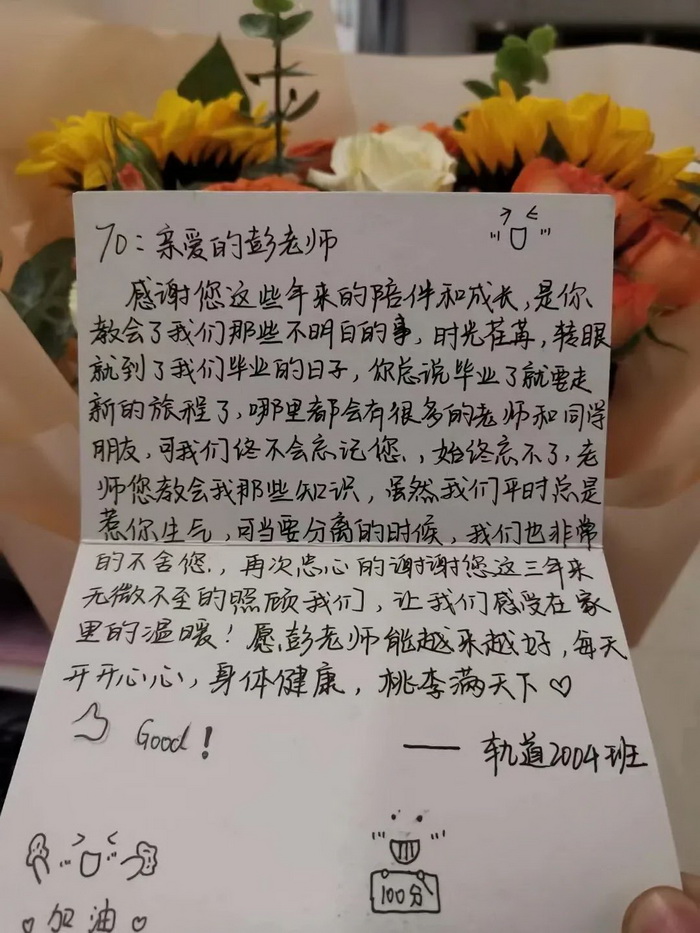 TO：亲爱的彭老师
感谢您这些年来的陪伴和成长，是你
教会了我们那些不明白的事，时光荏苒，转眼
就到了我们毕业的日子，你总说毕业了就要走
新的旅程了，哪里都会有很多的老师和同学
朋友，可我们终不会忘记您，，始终忘不了，老
师您教会我那些知识，虽然我们平时总是
惹你生气，可当要分离的时候，我们也非常
的不舍您，再次忠心的谢谢您这三年来
无微不至的照顾我们，让我们感受在家
里的温暖！愿彭老师能越来越好，每天
开开心心，身体健康，桃李满天下♡
Good！
—— 轨道2004班
100分
♡加油♡